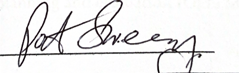 Pat Sweeney